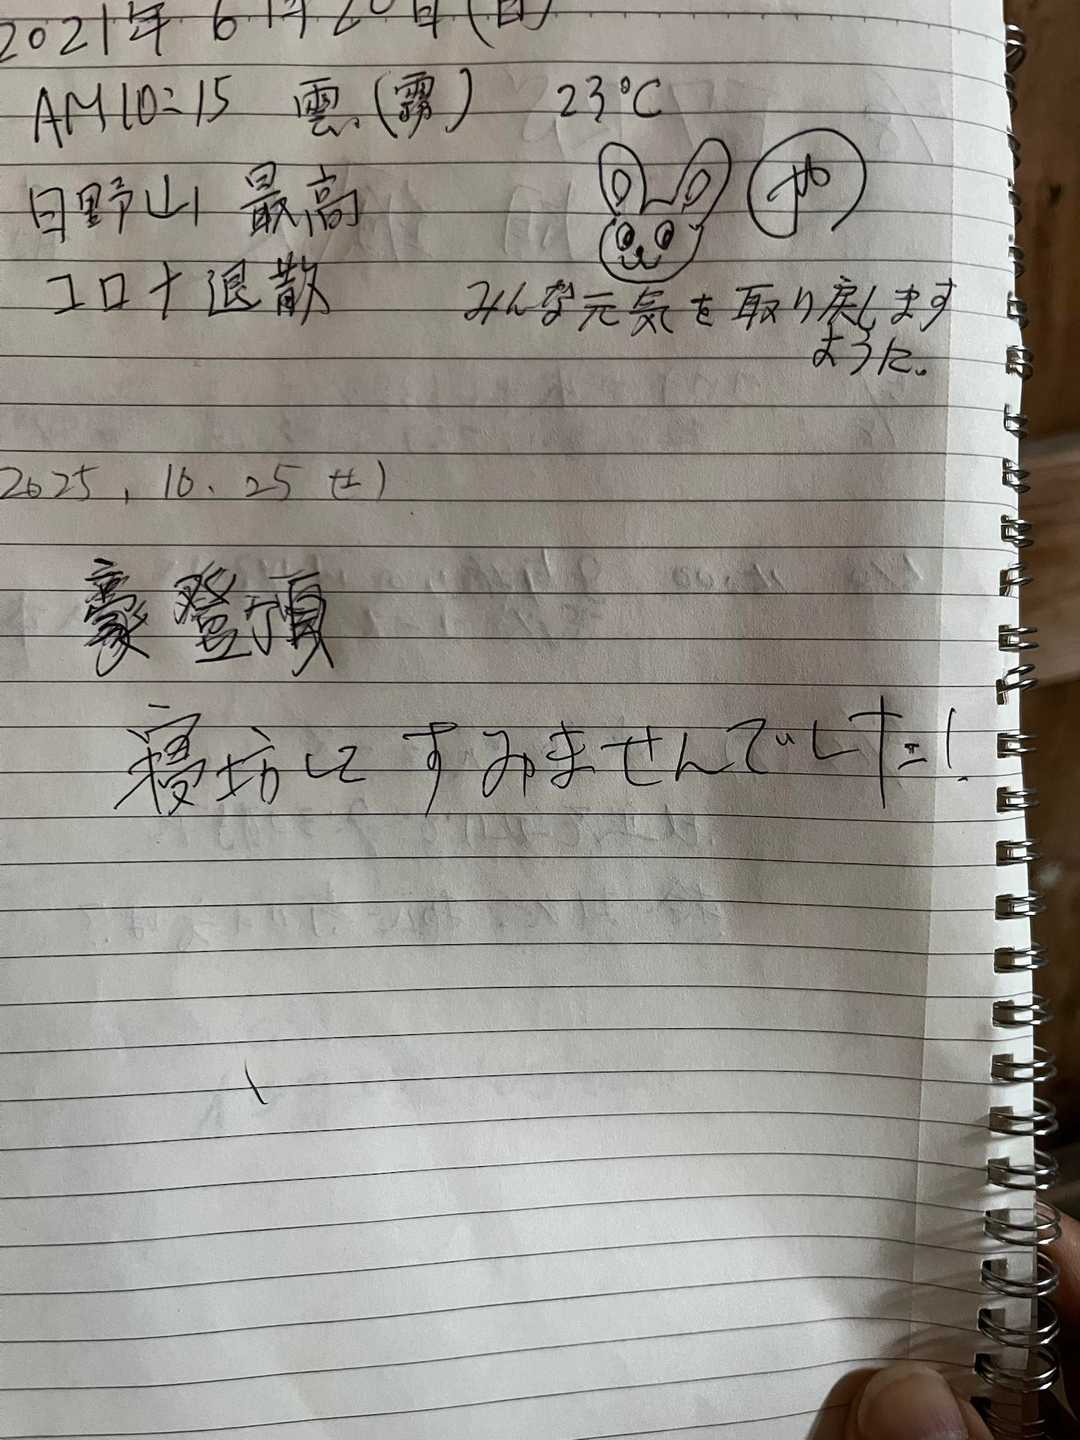 2021年6月20日(日)
AM10:15 雲(霧) 23℃
日野山 最高 や
コロナ退散 みんな元気を取り戻します
ように。
2025, 10. 25 (土)
豪 登頂
寝坊して すみませんでした!